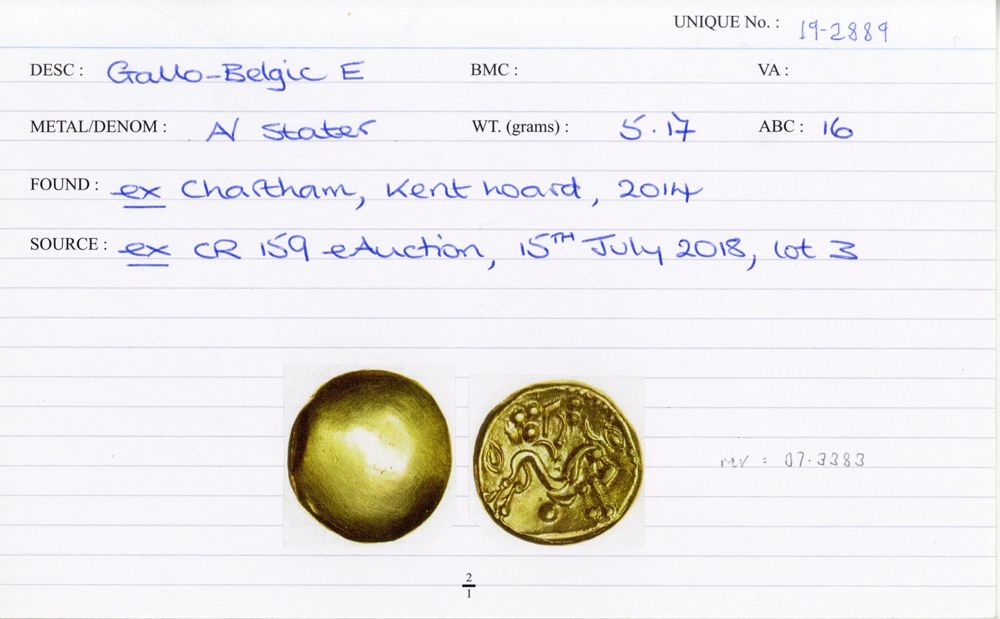 UNIQUE No. : 19-2889
DESC : Gallo-Belgic E BMC : VA :
METAL/DENOM : A/ Stater WT. (grams) : 5.17 ABC : 16
FOUND : ex Chartham, Kent hoard, 2014
SOURCE : ex CR 159 eAuction, 15TH July 2018, lot 3
rev : 07.3383
2
1